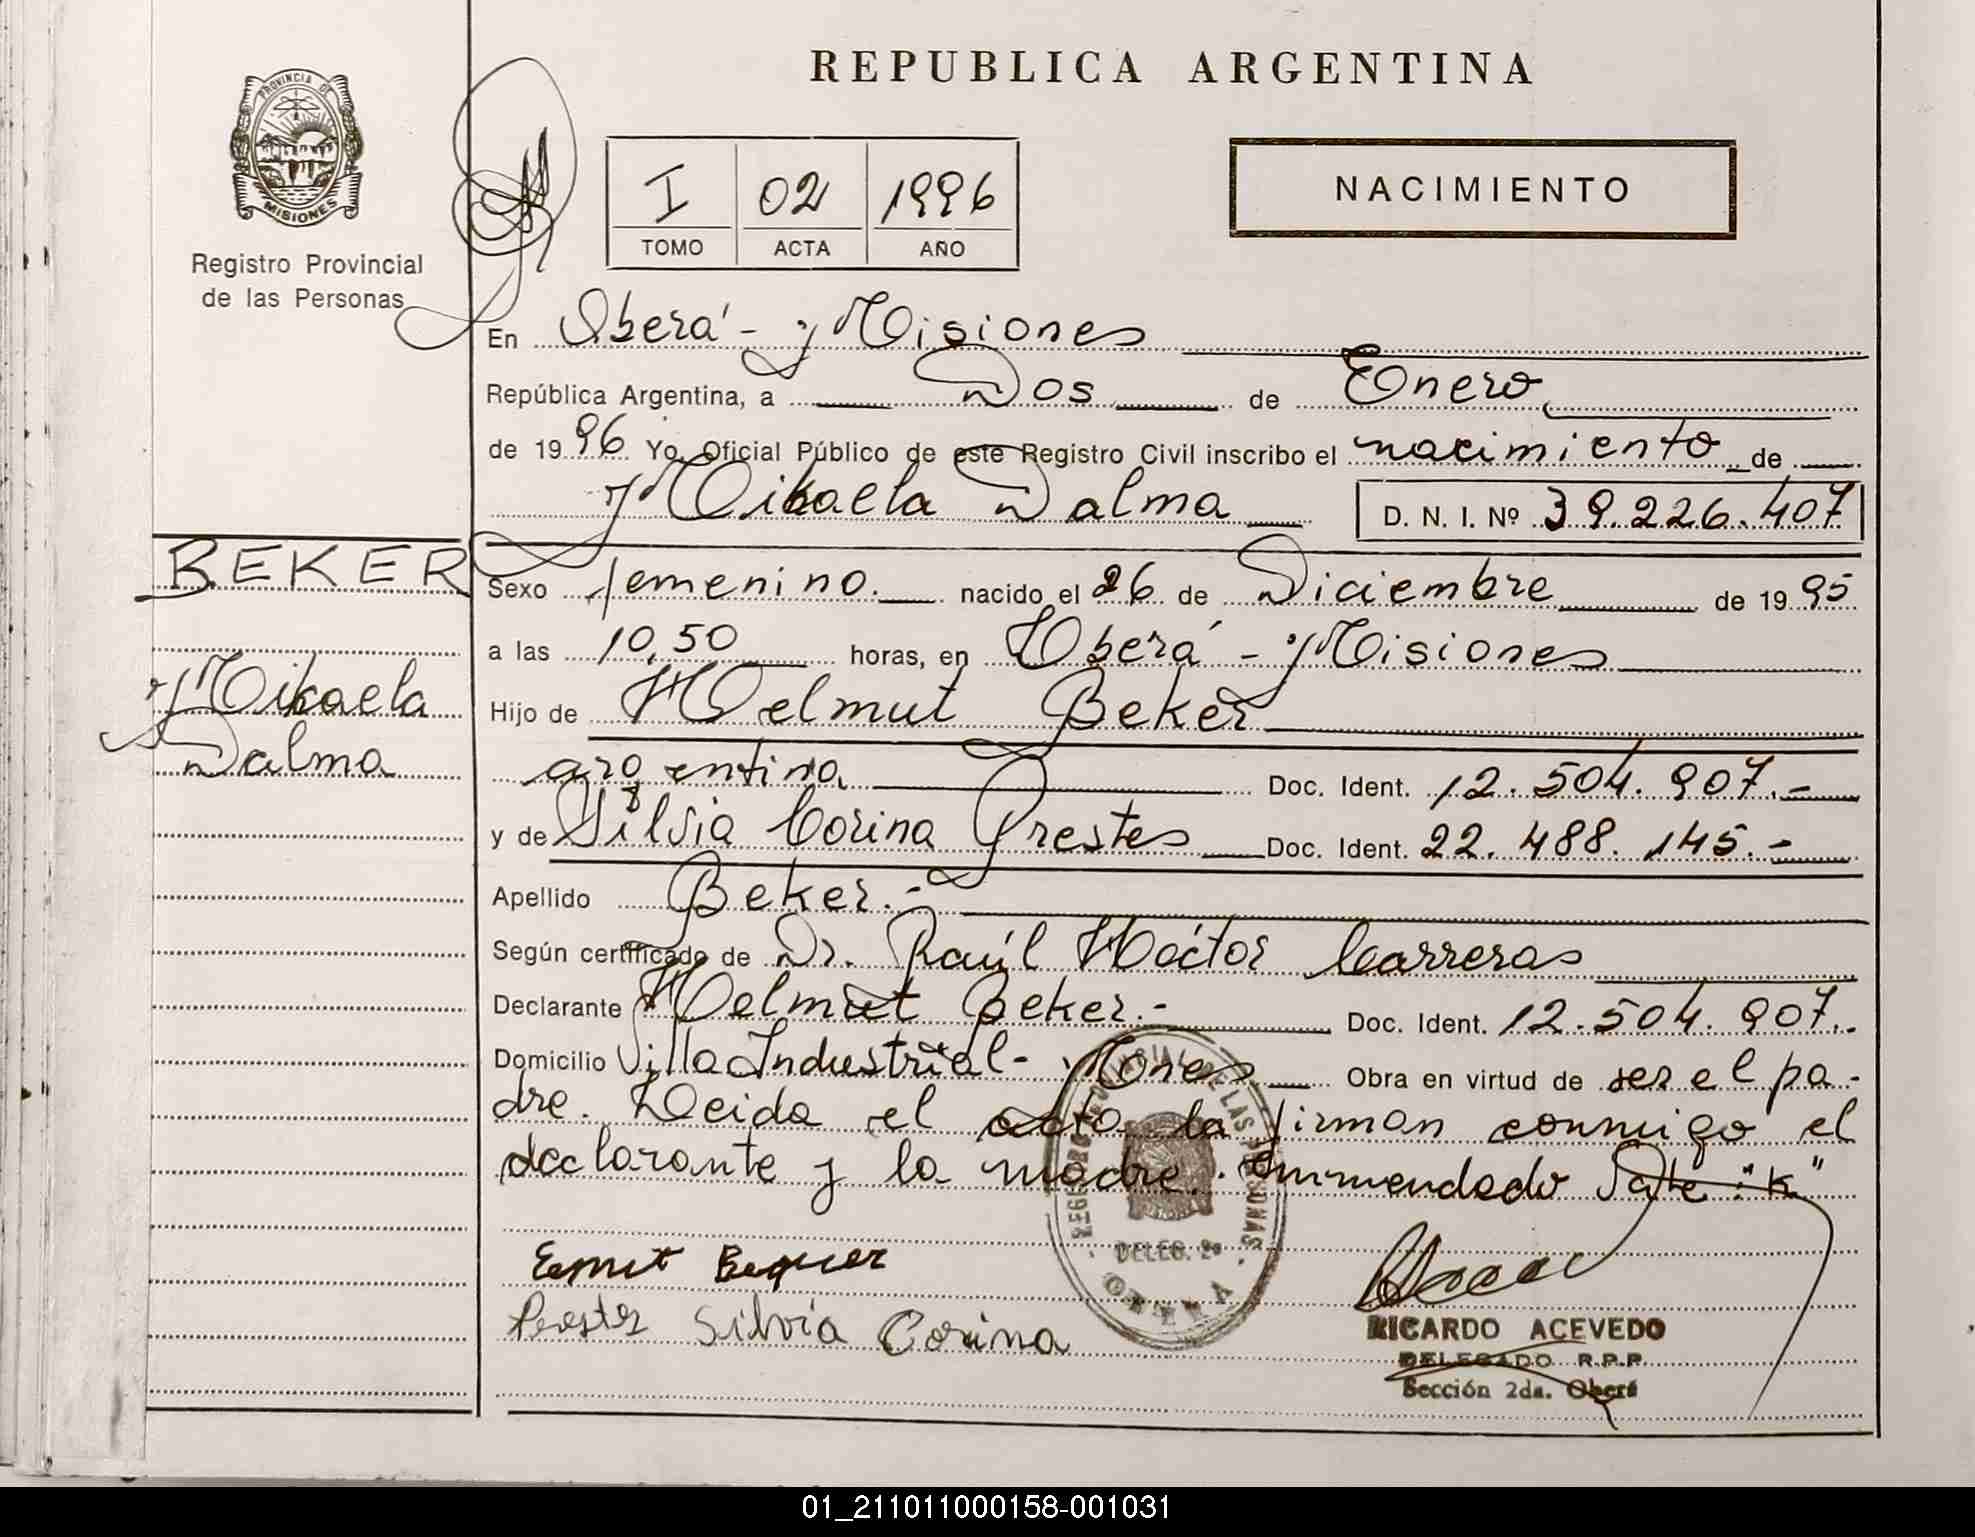 REPUBLICA ARGENTINA
PROVINCIA DE
MISIONES
Registro Provincial
de las Personas
I 02 1996
TOMO ACTA AÑO
NACIMIENTO
En Oberá - Misiones
República Argentina, a Dos de Enero
de 1996 Yo, Oficial Público de este Registro Civil inscribo el nacimiento de
Mikaela Dalma D. N. I. Nº 39.226.407
BEKER
Mikaela
Dalma
Sexo femenino. nacido el 26 de Diciembre de 1995
a las 10,50 horas, en Oberá - Misiones
Hijo de Helmut Beker
argentina Doc. Ident. 12.504.907.-
y de Silvia Corina Prestes Doc. Ident. 22.488.145.-
Apellido Beker.-
Según certificado de Dr. Raúl Héctor Carreras
Declarante Helmut Beker.- Doc. Ident. 12.504.907.
Domicilio Villa Industrial - Mnes Obra en virtud de ser el pa-
dre. Leida el acta la firman conmigo el
declarante y la madre. Enmendado "k"
DELEG. 2ª
OBERA
Prestes Silvia Corina
RICARDO ACEVEDO
DELEGADO R.P.P.
Sección 2da. Oberá
01_211011000158-001031